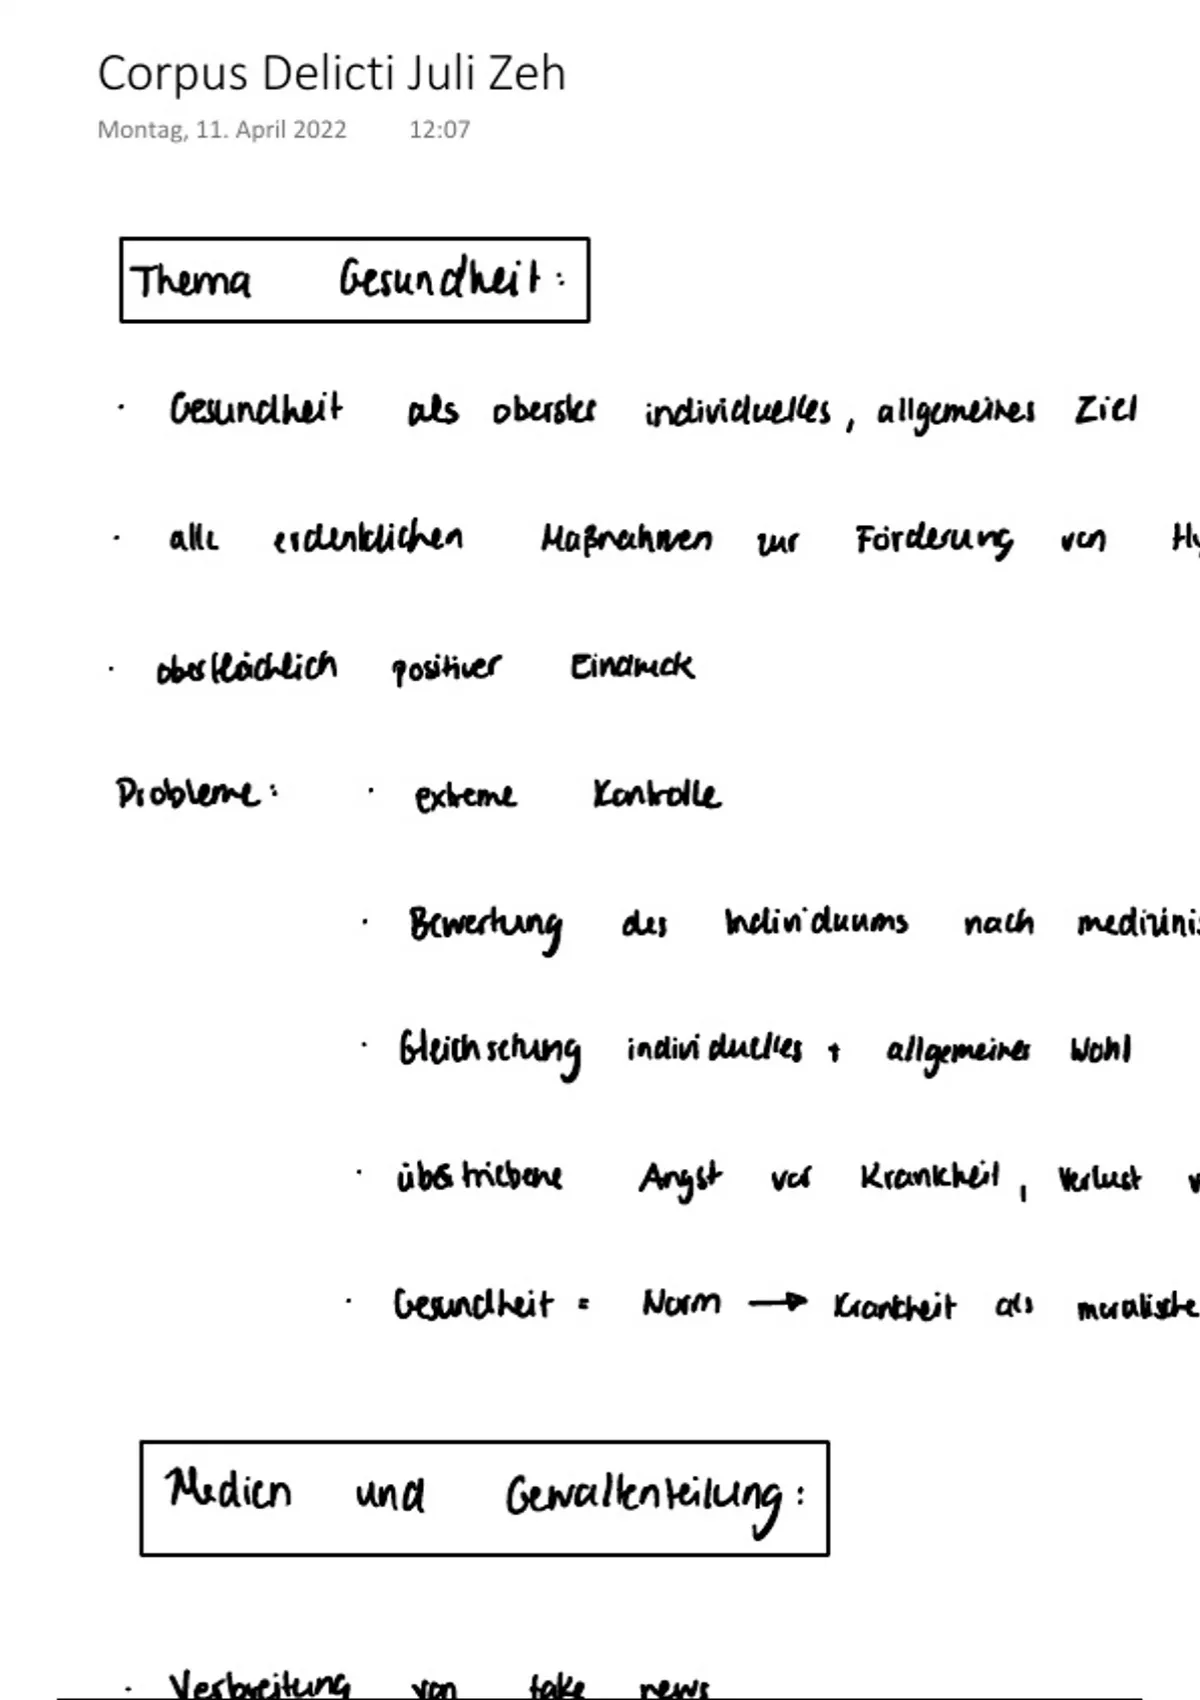 Corpus Delicti Juli Zeh
Montag, 11. April 2022 12:07
Thema Gesundheit:
· Gesundheit als oberstes individuelles, allgemeines Ziel
· alle erdenklichen Maßnahmen zur Förderung von Hy
· oberflächlich positiver Eindruck
Probleme: · extreme Kontrolle
· Bewertung des Individuums nach medizinis
· Gleichsetzung individuelles + allgemeines Wohl
· übertriebene Angst vor Krankheit, Verlust v
· Gesundheit = Norm → Krankheit als moralische
Medien und Gewaltenteilung:
· Verbreitung von fake news